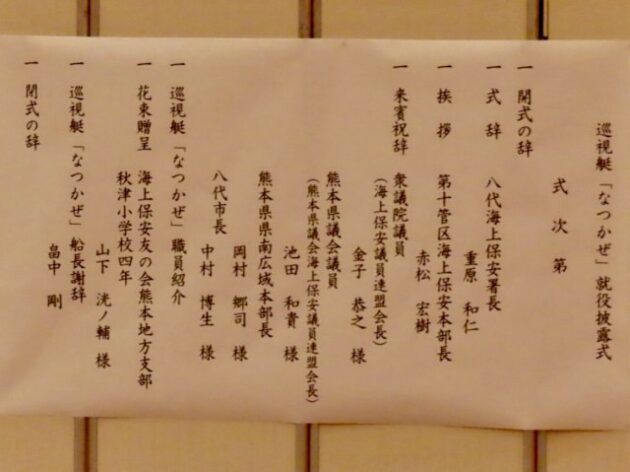 巡視艇「なつかぜ」就役披露式
式次第
一 開式の辞
一 式辞 八代海上保安署長
重原 和仁
一 挨拶 第十管区海上保安本部長
赤松 宏樹
一 来賓祝辞 衆議院議員
(海上保安議員連盟会長)
金子 恭之 様
熊本県議会議員
(熊本県議会海上保安議員連盟会長)
池田 和貴 様
熊本県県南広域本部長
岡村 郷司 様
八代市長
中村 博生 様
一 巡視艇「なつかぜ」職員紹介
一 花束贈呈 海上保安友の会熊本地方支部
秋津小学校四年
山下 洸ノ輔 様
一 巡視艇「なつかぜ」船長謝辞
畠中 剛
一 閉式の辞